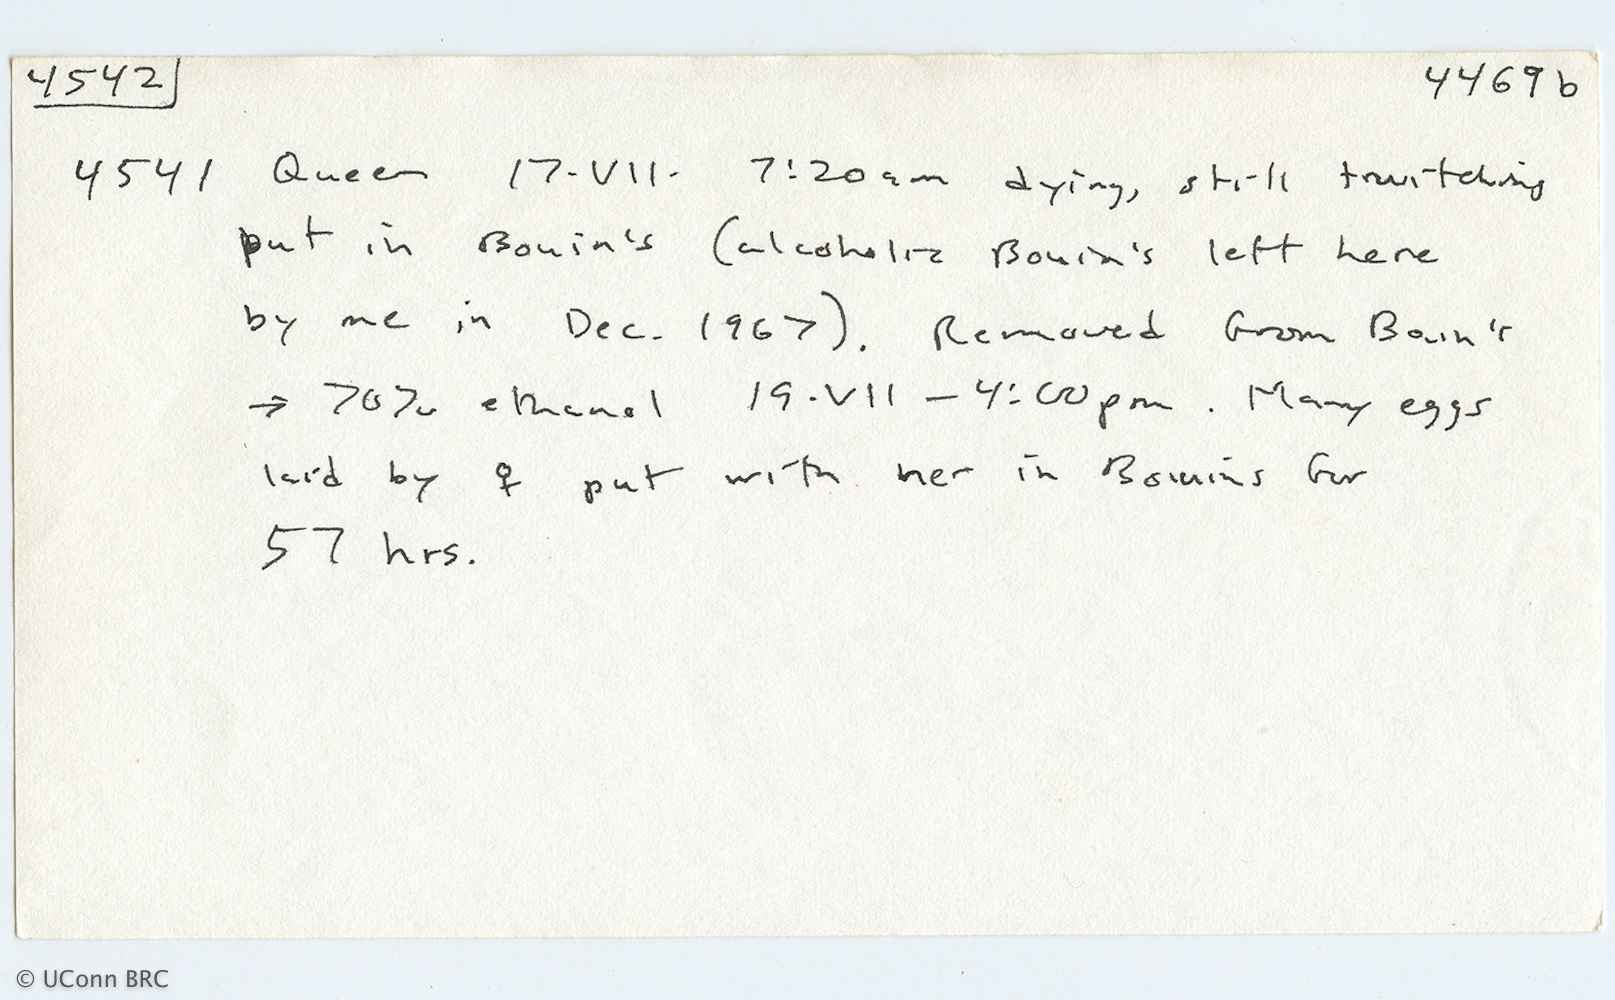 4542 4469b
4541 Queen 17.VII. 7:20am dying, still twitching
put in Bouin's (alcoholic Bouin's left here
by me in Dec. 1967). Removed from Bouin's
→ 70% ethanol 19.VII – 4:00pm. Many eggs
laid by ♀ put with her in Bouins for
57 hrs.
© UConn BRC